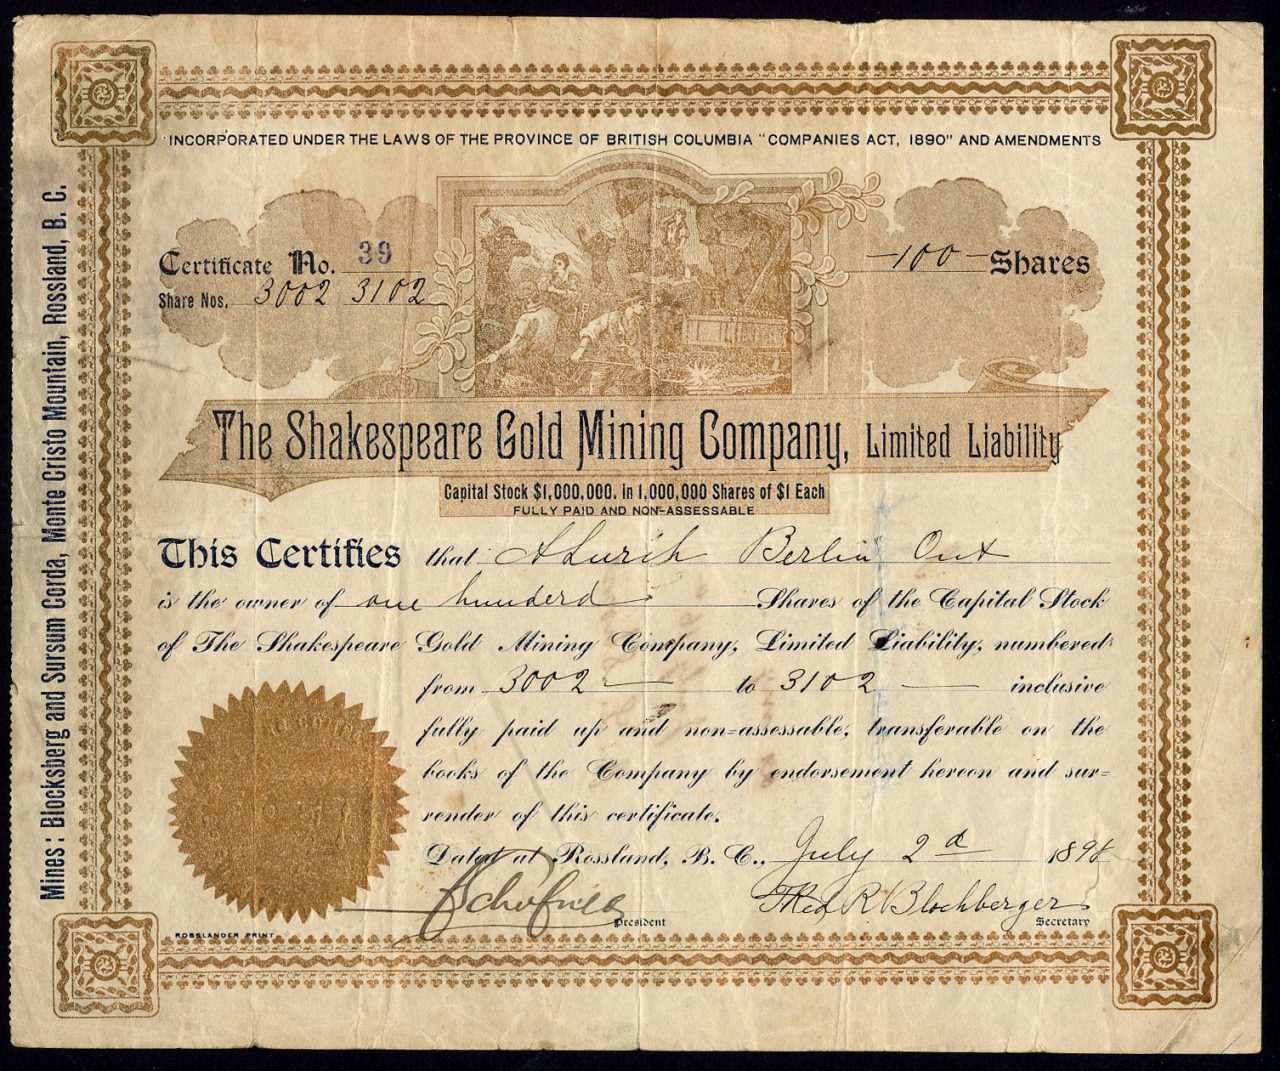 INCORPORATED UNDER THE LAWS OF THE PROVINCE OF BRITISH COLUMBIA "COMPANIES ACT, 1890" AND AMENDMENTS
Certificate No. 39
Share Nos. 3002 3102
—100— Shares
The Shakespeare Gold Mining Company, Limited Liability
Capital Stock $1,000,000. in 1,000,000 Shares of $1 Each
FULLY PAID AND NON-ASSESSABLE
This Certifies that Berlin Ont
is the owner of one hunderd Shares of the Capital Stock
of The Shakespeare Gold Mining Company, Limited Liability, numbered
from 3002 — to 3102 — inclusive
fully paid up and non-assessable, transferable on the
books of the Company by endorsement hereon and sur-
render of this certificate.
Dated at Rossland, B. C., July 2d 189
President
R Blochberger
Secretary
ROSSLANDER PRINT
Mines: Blocksberg and Sursum Corda, Monte Cristo Mountain, Rossland, B. C.